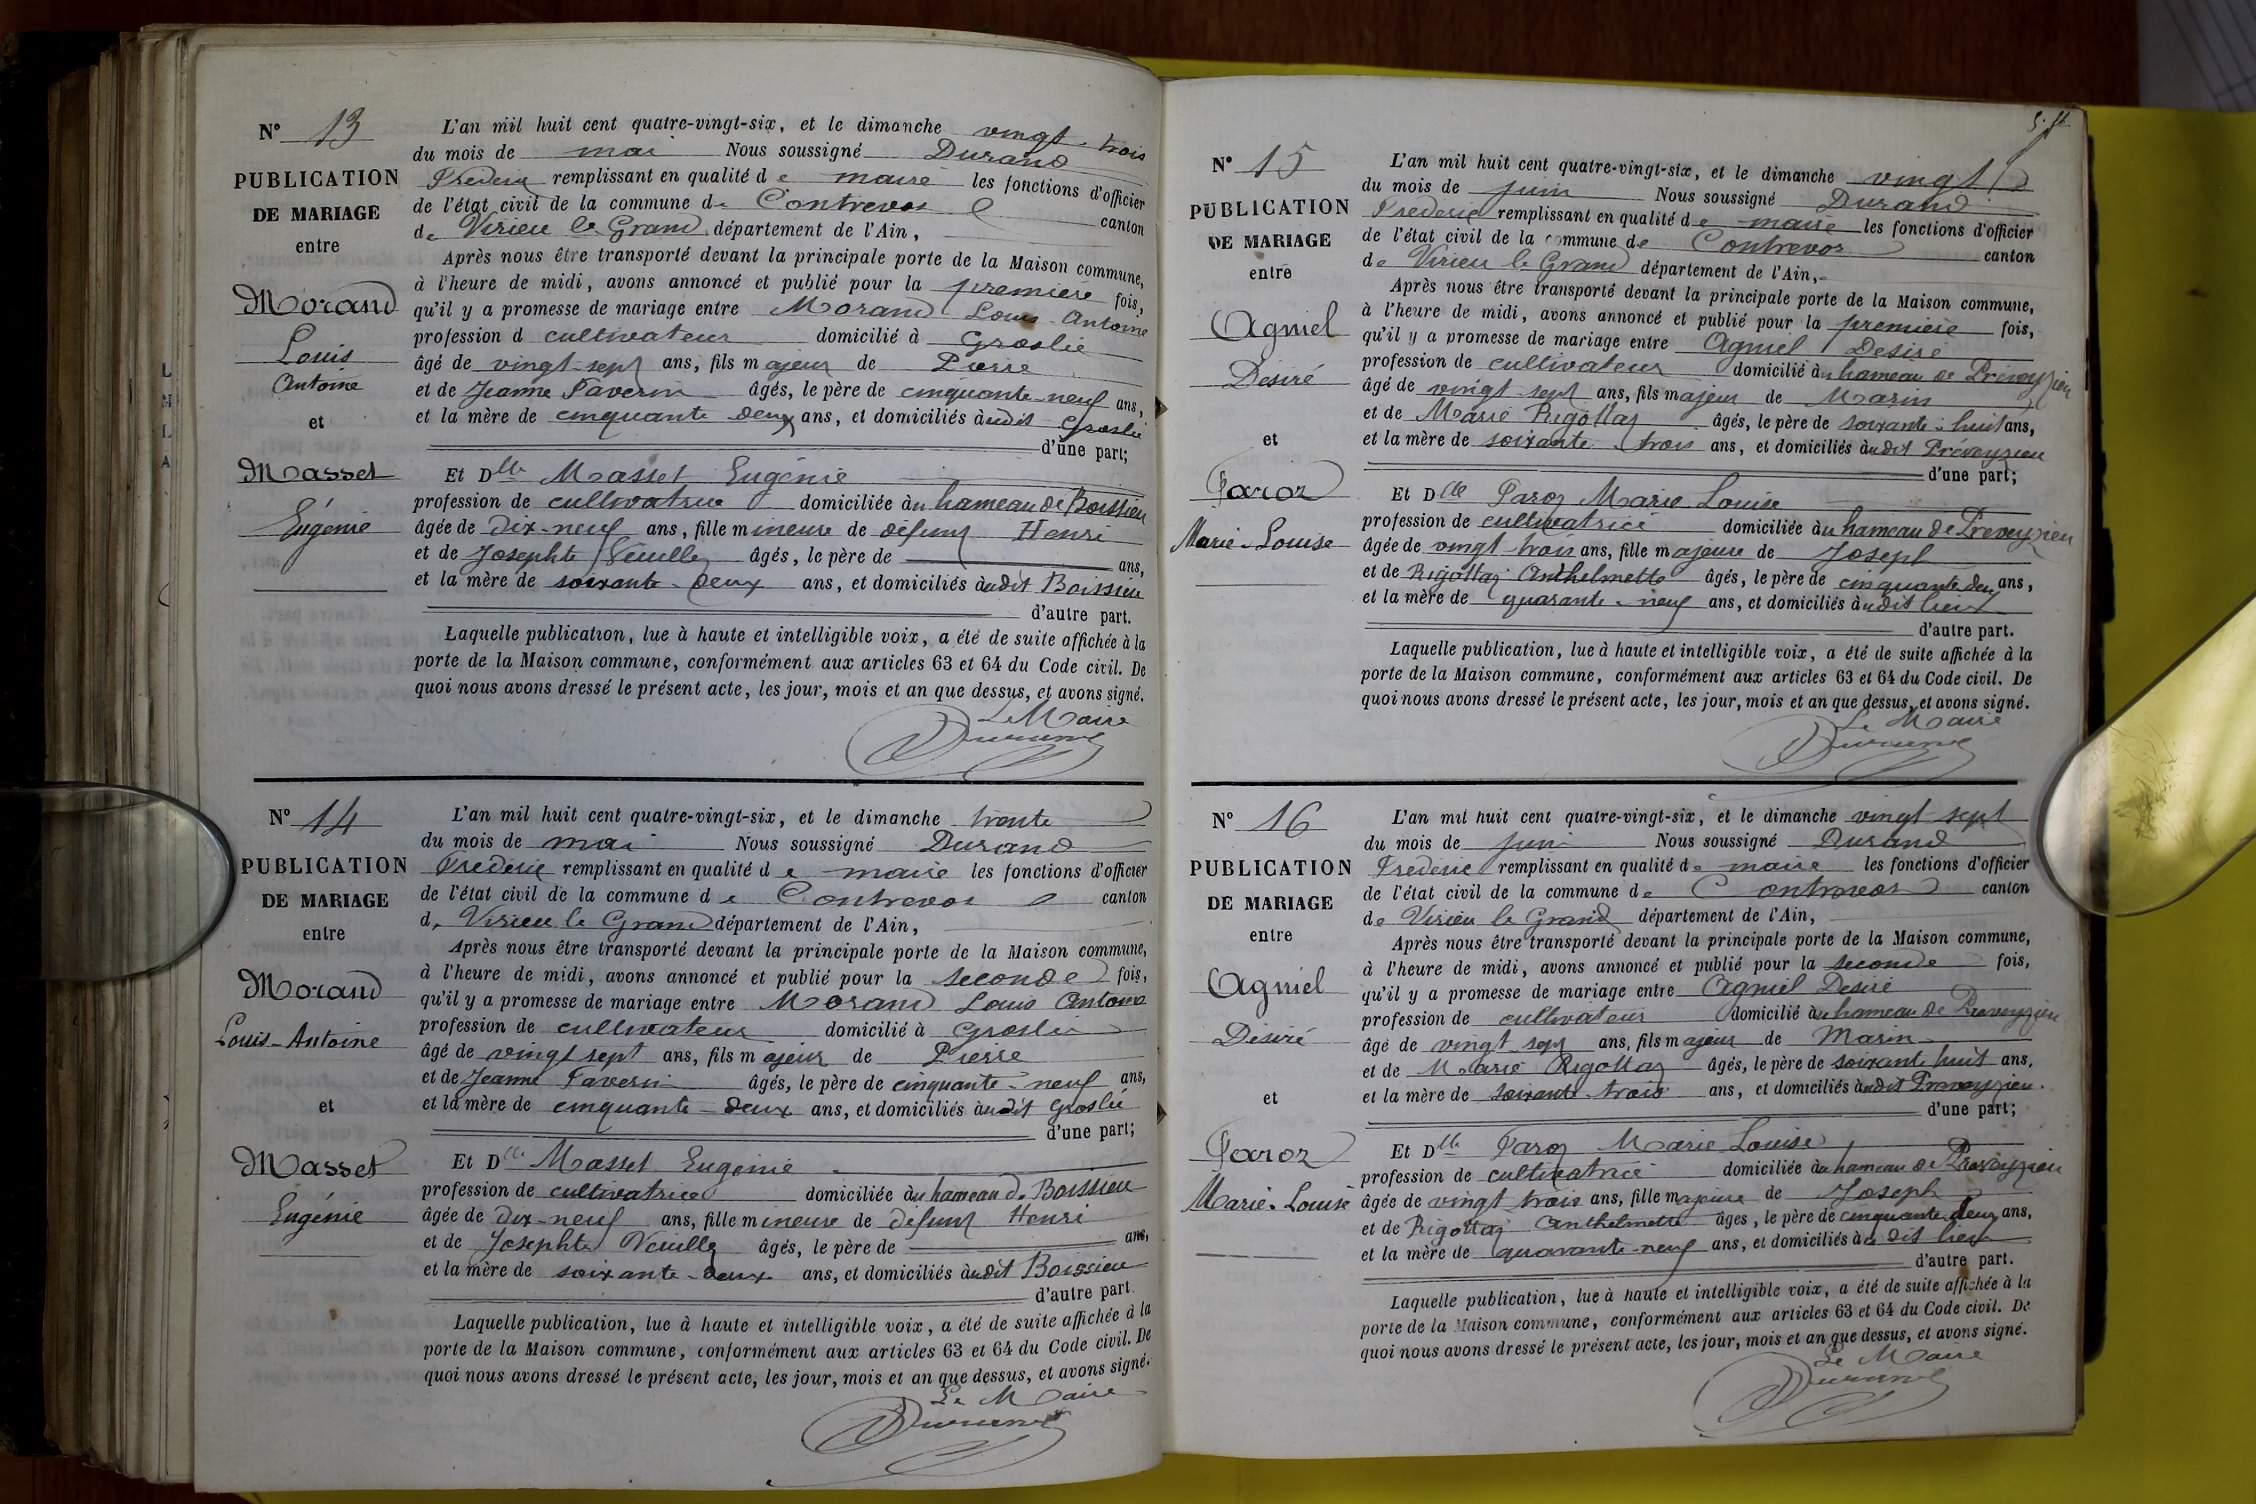 N° 13
PUBLICATION
DE MARIAGE
entre
Morand
Louis
Antoine
et
Masset
Eugénie
L'an mil huit cent quatre-vingt-six, et le dimanche vingt-trois
du mois de mai Nous soussigné Durand
Frederic remplissant en qualité de maire les fonctions d'officier
de l'état civil de la commune de Contrevoz canton
de Virieu le Grand département de l'Ain,
Après nous être transporté devant la principale porte de la Maison commune,
à l'heure de midi, avons annoncé et publié pour la première fois,
qu'il y a promesse de mariage entre Morand Louis Antoine
profession d cultivateur domicilié à Groslée
âgé de vingt-sept ans, fils majeur de Pierre
et de Jeanne Taverin âgés, le père de cinquante-neuf ans,
et la mère de cinquante deux ans, et domiciliés audit Groslée
d'une part;
Et Dlle Masset Eugénie
profession de cultivatrice domiciliée au hameau de Boissieu
âgée de dix-neuf ans, fille mineure de défunt Henri
et de Josephte Veuillez âgés, le père de ans,
et la mère de soixante-deux ans, et domiciliés audit Boissieu
d'autre part.
Laquelle publication, lue à haute et intelligible voix, a été de suite affichée à la
porte de la Maison commune, conformément aux articles 63 et 64 du Code civil. De
quoi nous avons dressé le présent acte, les jour, mois et an que dessus, et avons signé.
Le Maire
Durand
N° 14
PUBLICATION
DE MARIAGE
entre
Morand
Louis-Antoine
et
Masset
Eugénie
L'an mil huit cent quatre-vingt-six, et le dimanche trente
du mois de mai Nous soussigné Durand
Frederic remplissant en qualité de maire les fonctions d'officier
de l'état civil de la commune de Contrevoz canton
de Virieu le Grand département de l'Ain,
Après nous être transporté devant la principale porte de la Maison commune,
à l'heure de midi, avons annoncé et publié pour la seconde fois,
qu'il y a promesse de mariage entre Morand Louis Antoine
profession de cultivateur domicilié à Groslée
âgé de vingt sept ans, fils majeur de Pierre
et de Jeanne Taverin âgés, le père de cinquante-neuf ans,
et la mère de cinquante-deux ans, et domiciliés audit Groslée
d'une part;
Et Dlle Masset Eugénie
profession de cultivatrice domiciliée au hameau de Boissieu
âgée de dix-neuf ans, fille mineure de défunt Henri
et de Josephte Veuillez âgés, le père de ans,
et la mère de soixante-deux ans, et domiciliés audit Boissieu
d'autre part.
Laquelle publication, lue à haute et intelligible voix, a été de suite affichée à la
porte de la Maison commune, conformément aux articles 63 et 64 du Code civil. De
quoi nous avons dressé le présent acte, les jour, mois et an que dessus, et avons signé.
Le Maire
Durand
N° 15
PUBLICATION
DE MARIAGE
entre
Agniel
Desiré
et
Faroz
Marie-Louise
L'an mil huit cent quatre-vingt-six, et le dimanche vingt
du mois de juin Nous soussigné Durand
Frederic remplissant en qualité de maire les fonctions d'officier
de l'état civil de la commune de Contrevoz canton
de Virieu le Grand département de l'Ain,
Après nous être transporté devant la principale porte de la Maison commune,
à l'heure de midi, avons annoncé et publié pour la première fois,
qu'il y a promesse de mariage entre Agniel Desiré
profession de cultivateur domicilié au hameau de Préveyzieu
âgé de vingt-sept ans, fils majeur de Marin
et de Marie Rigottaz âgés, le père de soixante-huit ans,
et la mère de soixante-trois ans, et domiciliés audit Préveyzieu
d'une part;
Et Dlle Faroz Marie Louise
profession de cultivatrice domiciliée au hameau de Preveyzieu
âgée de vingt-trois ans, fille majeure de Joseph
et de Rigottaz Anthelmette âgés, le père de cinquante deux ans,
et la mère de quarante-neuf ans, et domiciliés audit lieu
d'autre part.
Laquelle publication, lue à haute et intelligible voix, a été de suite affichée à la
porte de la Maison commune, conformément aux articles 63 et 64 du Code civil. De
quoi nous avons dressé le présent acte, les jour, mois et an que dessus, et avons signé.
Le Maire
Durand
N° 16
PUBLICATION
DE MARIAGE
entre
Agniel
Désiré
et
Faroz
Marie-Louise
L'an mil huit cent quatre-vingt-six, et le dimanche vingt sept
du mois de juin Nous soussigné Durand
Frederic remplissant en qualité de maire les fonctions d'officier
de l'état civil de la commune de Contrevoz canton
de Virieu le Grand département de l'Ain,
Après nous être transporté devant la principale porte de la Maison commune,
à l'heure de midi, avons annoncé et publié pour la seconde fois,
qu'il y a promesse de mariage entre Agniel Desiré
profession de cultivateur domicilié au hameau de Preveyzieu
âgé de vingt-sept ans, fils majeur de Marin
et de Marie Rigottaz âgés, le père de soixante huit ans,
et la mère de soixante-trois ans, et domiciliés audit Preveyzieu.
d'une part;
Et Dlle Faroz Marie Louise
profession de cultivatrice domiciliée au hameau de Preveyzieu
âgée de vingt-trois ans, fille majeure de Joseph
et de Rigottaz Anthelmette âgés, le père de cinquante deux ans,
et la mère de quarante-neuf ans, et domiciliés au dit lieu
d'autre part.
Laquelle publication, lue à haute et intelligible voix, a été de suite affichée à la
porte de la Maison commune, conformément aux articles 63 et 64 du Code civil. De
quoi nous avons dressé le présent acte, les jour, mois et an que dessus, et avons signé.
Le Maire
Durand